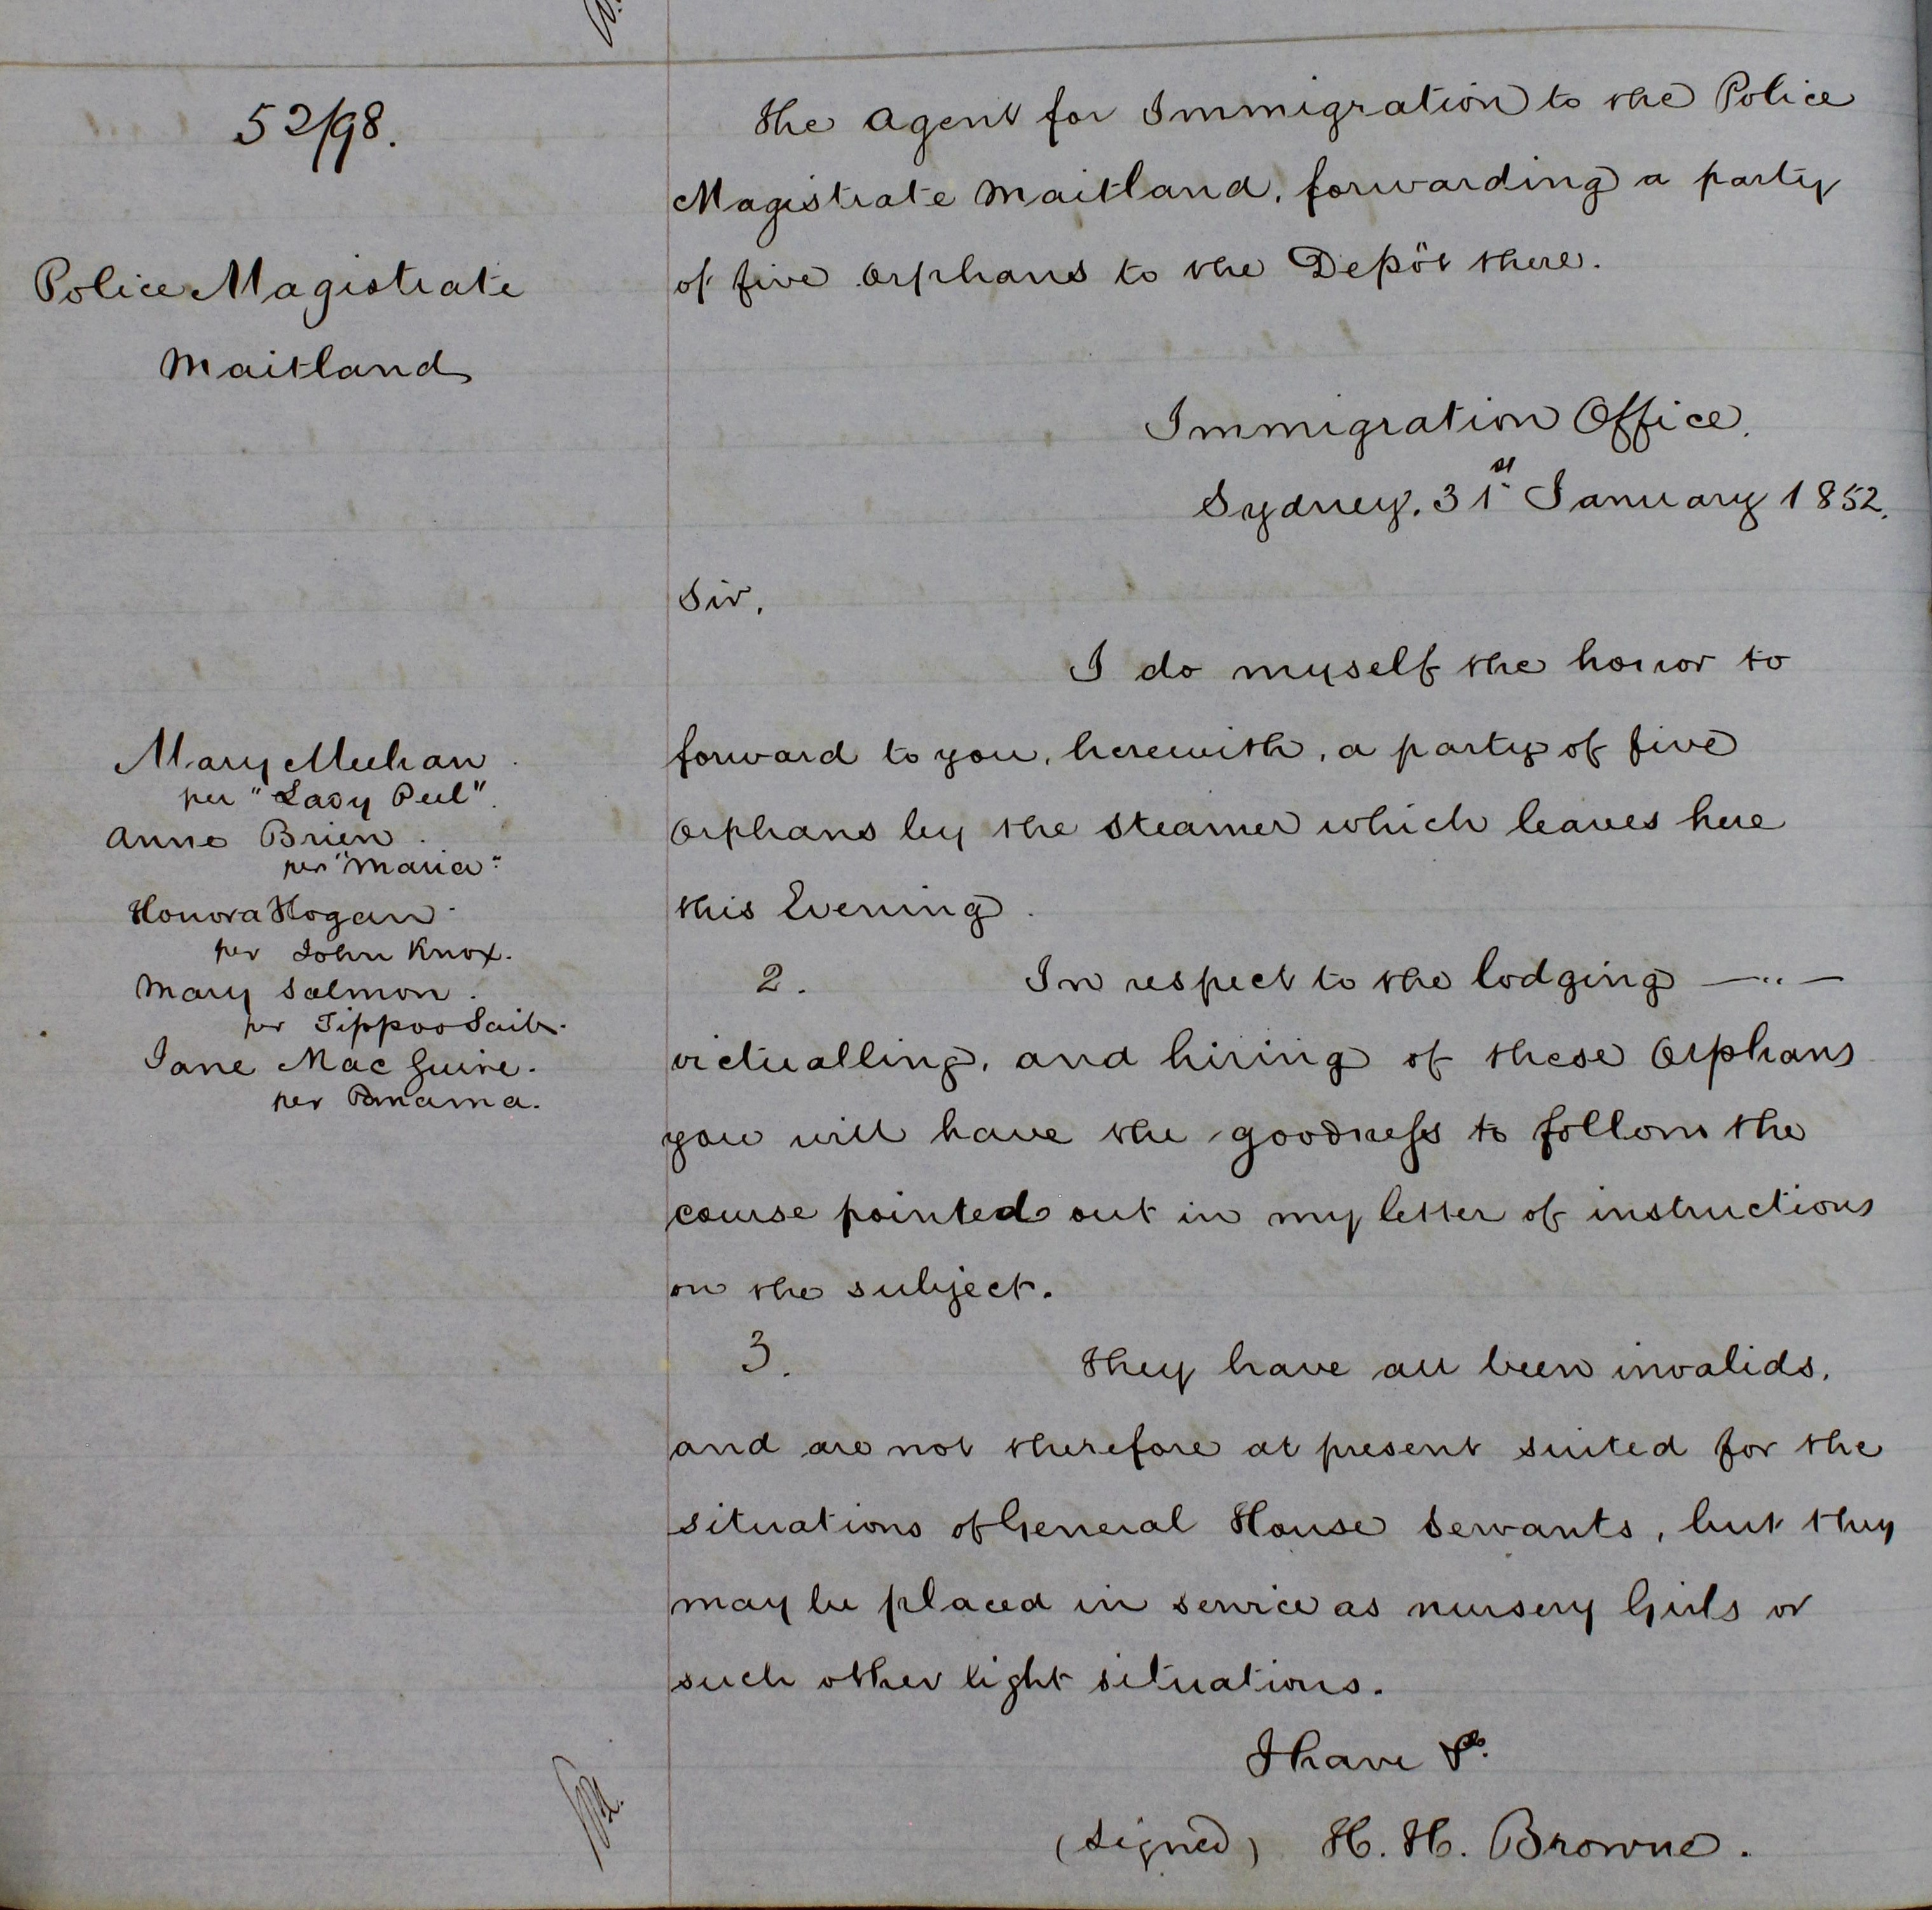 52/98.
Police Magistrate
Maitland
The Agent for Immigration to the Police
Magistrate Maitland, forwarding a party
of five Orphans to the Depôt there.
Immigration Office.
Sydney. 31st January 1852.
Sir,
I do myself the honor to
forward to you, herewith, a party of five
Orphans by the Steamer which leaves here
this Evening.
Mary Meehan.
per "Lady Peel".
Anne Brien.
per "Maria".
Honora Hogan.
per John Knox.
Mary Salmon.
per Tippoo Saib.
Jane MacGuire.
per Panama.
2. In respect to the lodging
victualling, and hiring of these Orphans
you will have the goodness to follow the
course pointed out in my letter of instructions
on the subject.
3. They have all been invalids,
and are not therefore at present suited for the
situations of General House Servants, but they
may be placed in service as nursery Girls or
such other light situations.
I have &c.
(Signed) H. H. Browne.